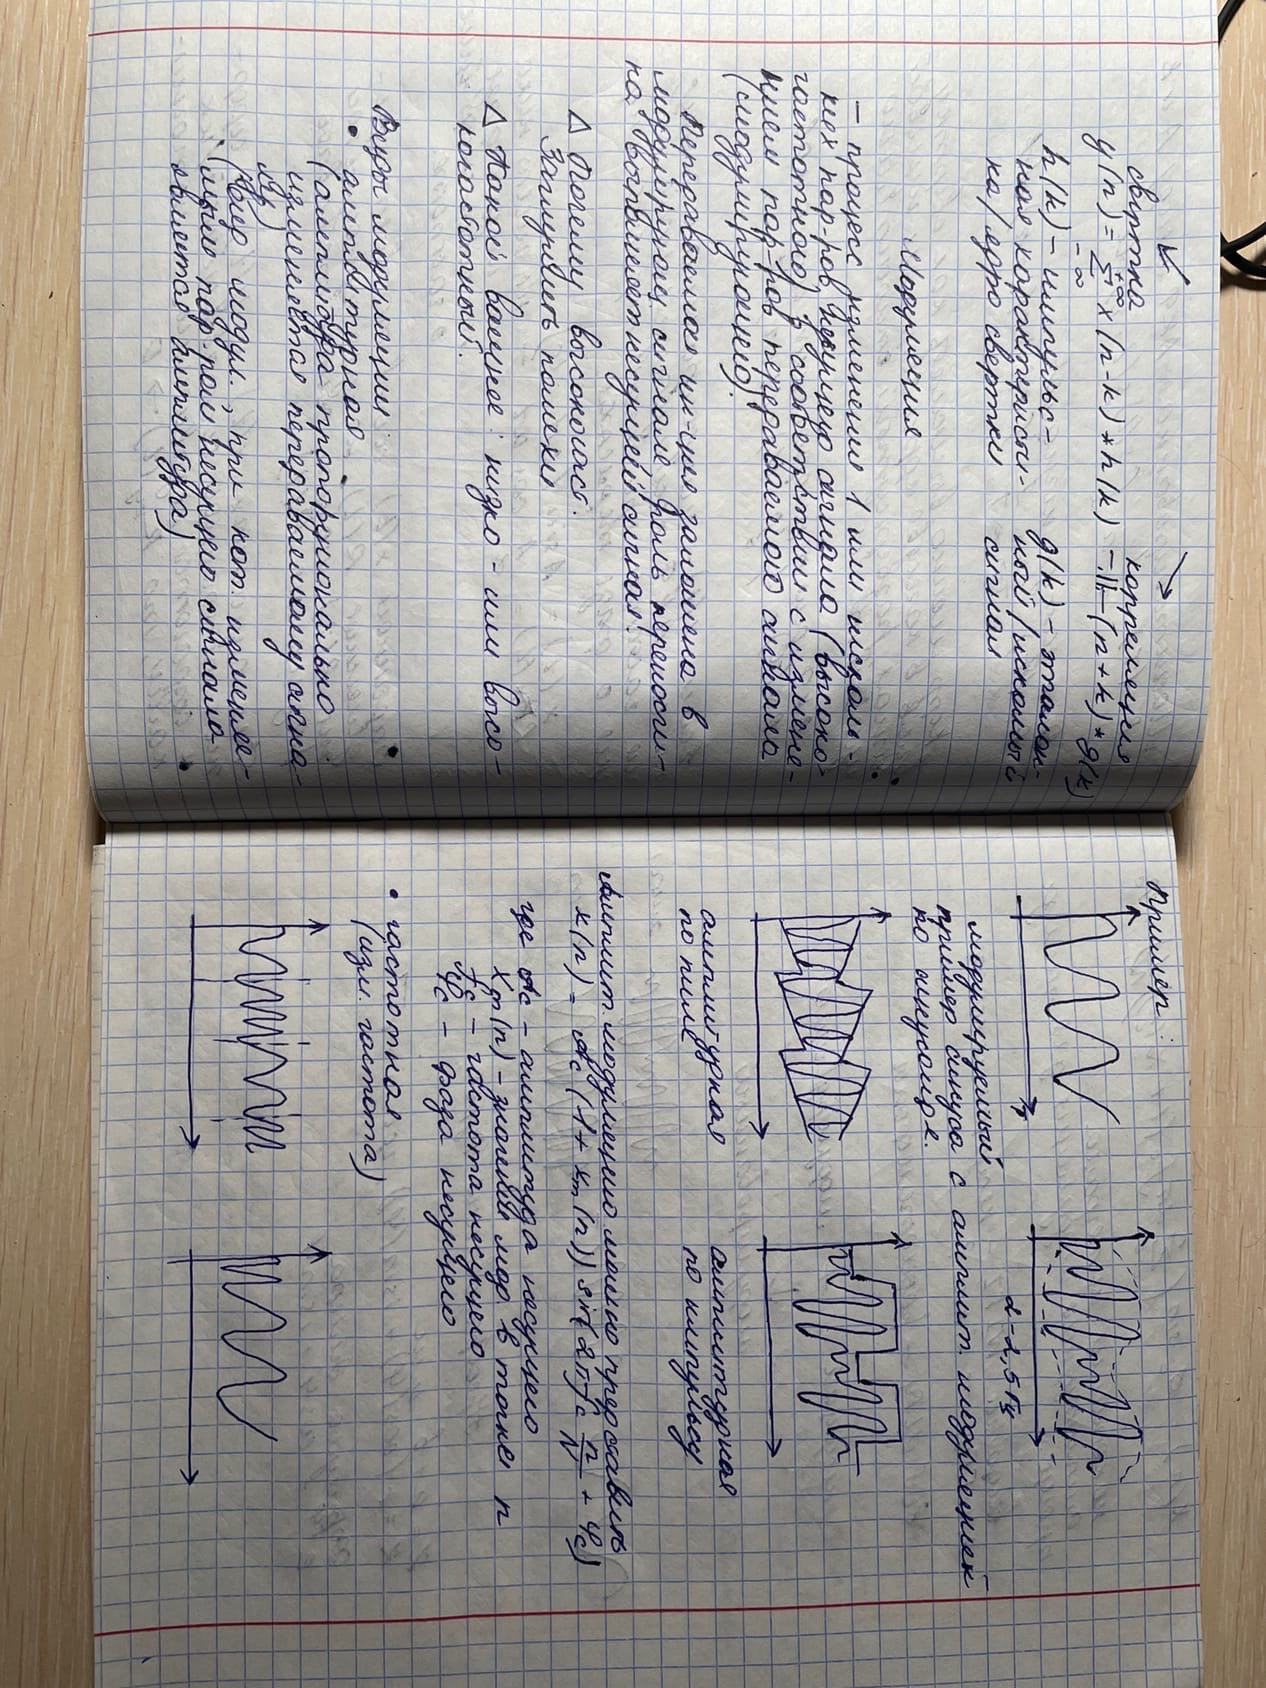 свёртка
y(n) = +∞ Σ -∞ x(n-k) * h(k)
h(k) – импульс-
ная характеристи-
ка / ядро свертки
корреляция
–·||·– (n+k) * g(k)
g(k) – эталон-
ный / искомый
сигнал
Модуляция
– процесс изменения 1 или несколь-
ких пар-ров несущего сигнала (высоко-
частотного) в соответствии с измене-
нием пар-ров передаваемого сигнала
(модулирующего).
Передаваемая ин-ция заложена в
модулирующ сигнале, роль переносчи-
ка выполняет несущей сигнал.
△ Почему высокочаст.
Заглушить помехи
△ Какой важнее: низко- или высо-
кочастотный.
Виды модуляции
• амплитудная
(амплитуда пропорционально
изменяется передаваемому сигна-
лу)
(вид модул., при кот. изменяе-
мым пар-ром несущего сигнала
является амплитуда)
Пример:
T
2-2,5 Гц
модулируемый
пример синуса с амплит. модуляцией
по синусоиде.
амплитудная
по пиле
амплитудная
по импульсу
Амплит. модуляцию можно представить
x(n) = Ac (1 + xm(n)) sin(2πfc n/N + φc)
где Ac – амплитуда несущего
xm(n) – значение мод. в точке n
fc – частота несущего
φc – фаза несущего
• частотная
(изм. частота)